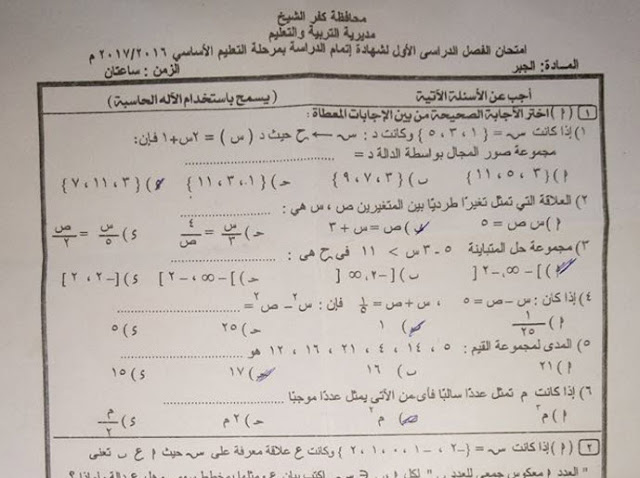 محافظة كفر الشيخ
مديرية التربية والتعليم
امتحان الفصل الدراسى الأول لشهادة إتمام الدراسة بمرحلة التعليم الأساسي ٢٠١٧/٢٠١٦ م
المـادة: الجبر الزمن : ساعتان
أجب عن الأسئلة الآتية (يسمح باستخدام الآله الحاسبة)
١ أ) اختر الأجابة الصحيحة من بين الإجابات المعطاة:
١) إذا كانت س = { ١ ، ٣ ، ٥ } وكانت د : س ← ح حيث د ( س ) = ٢س+١ فإن:
مجموعة صور المجال بواسطة الدالة د =
أ) { ٣ ، ٥ ، ١١ } ب) { ٣ ، ٧ ، ٩ } حـ) { ١ ، ٣ ، ١١ } ء) { ٣ ، ٧ ، ١١ }
٢) العلاقة التي تمثل تغيرًا طرديًا بين المتغيرين ص ، س هي :
أ) س ص = ٥ ب) ص = س + ٣ حـ) س/٣ = ٤/ص ء) س/٥ = ص/٢
٣) مجموعة حل المتباينة ٥ - ٣ س > ١١ فى ح هى :
أ) ]-∞ ، -٢[ ب) ]-٢ ، ∞[ حـ) ]-∞ ، -٢] ء) [-٢ ، ٢]
٤) إذا كان : س - ص = ٥ ، س + ص = ١/٥ فإن : س٢ - ص٢ =
أ) ١/٢٥ ب) ١ حـ) ٢٥ ء) ٥
٥) المدى لمجموعة القيم : ٥ ، ١٤ ، ٤ ، ٢١ ، ١٦ ، ١٢ هو
أ) ٢١ ب) ١٦ حـ) ١٧ ء) ١٥
٦) إذا كانت م تمثل عددًا سالبًا فأى من الأتى يمثل عددًا موجبًا
أ) م٣ ب) م٢ حـ) ٢ م ء) م/٢
٢ أ) إذا كانت س = { -٢ ، -١ ، ٠ ، ١ ، ٢ } وكانت ع علاقة معرفة على س حيث أ ع ب تعنى
العدد أ معكوس جمعى للعدد ب " لكل أ ، ب